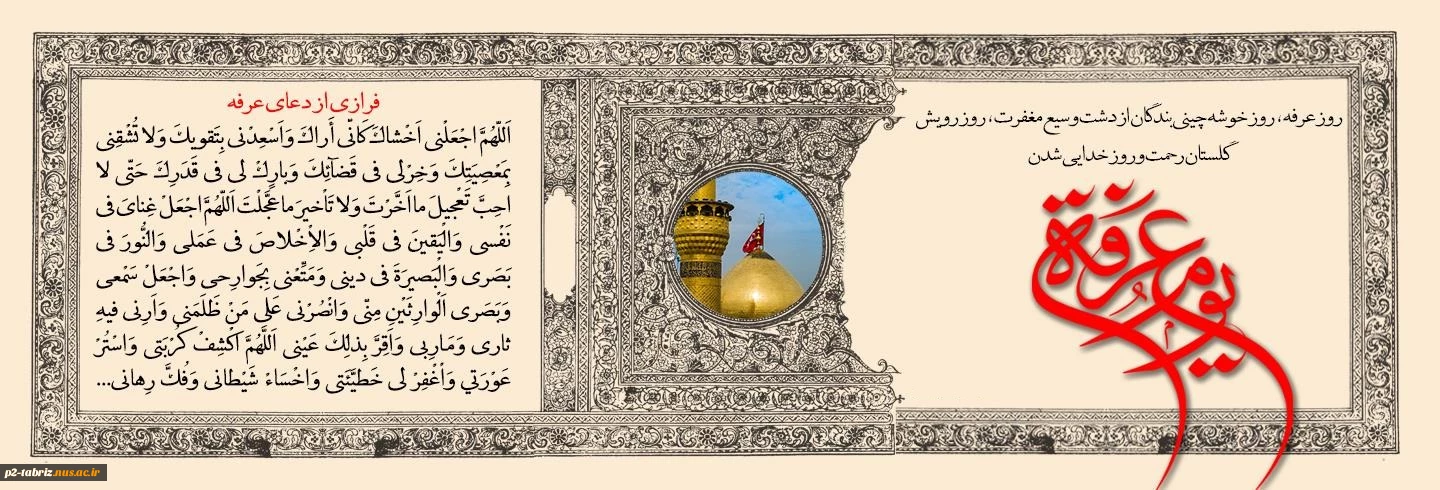 روز عرفه، روز خوشه چینی بندگان از دشت وسیع مغفرت، روز رویش
گلستان رحمت و روز خدایی شدن
یوم عرفة
فرازی از دعای عرفه
اَللّهُمَّ اجْعَلْنی اَخْشاكَ كَانّی أَراكَ وَاَسْعِدْنی بِتَقویكَ وَلا تُشْقِنی
بِمَعْصِیَتِكَ وَخِرْلی فی قَضآئِكَ وَبارِكْ لی فی قَدَرِكَ حَتّی لا
احِبَّ تَعْجیلَ ما اَخَّرْتَ وَلا تَاْخیرَ ما عَجَّلْتَ اَللّهُمَّ اجْعَلْ غِنایَ فی
نَفْسی وَالْیَقینَ فی قَلْبی وَالاِْخْلاصَ فی عَمَلی وَالنُّورَ فی
بَصَری وَالْبَصیرَةَ فی دینی وَمَتِّعْنی بِجَوارِحی وَاجْعَلْ سَمْعی
وَبَصَری اَلْوارِثَیْنِ مِنّی وَانْصُرْنی عَلی مَنْ ظَلَمَنی وَاَرِنی فیهِ
ثاری وَمَـارِبی وَاَقِرَّ بِذلِكَ عَیْنی اَللَّهُمَّ اكْشِفْ كُرْبَتی وَاسْتُرْ
عَوْرَتي وَاْغْفِرْ لی خَطیَّئَتی وَاخْسَاءْ شَیْطانی وَفُكَّ رِهانی...
p2-tabriz.nus.ac.ir